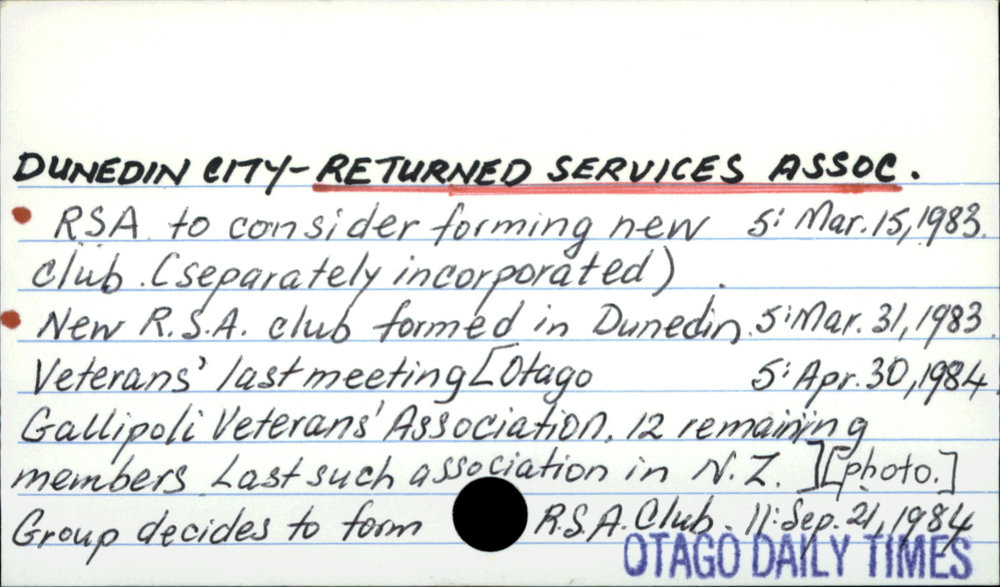 DUNEDIN CITY - RETURNED SERVICES ASSOC.
RSA to consider forming new 5: Mar. 15, 1983.
club. (separately incorporated).
New R.S.A. club formed in Dunedin. 5: Mar. 31, 1983.
Veterans' last meeting [Otago 5: Apr. 30, 1984.
Gallipoli Veterans' Association. 12 remaining
members. Last such association in N.Z.] [photo.]
Group decides to form R.S.A. Club. 11: Sep. 21, 1984
OTAGO DAILY TIMES